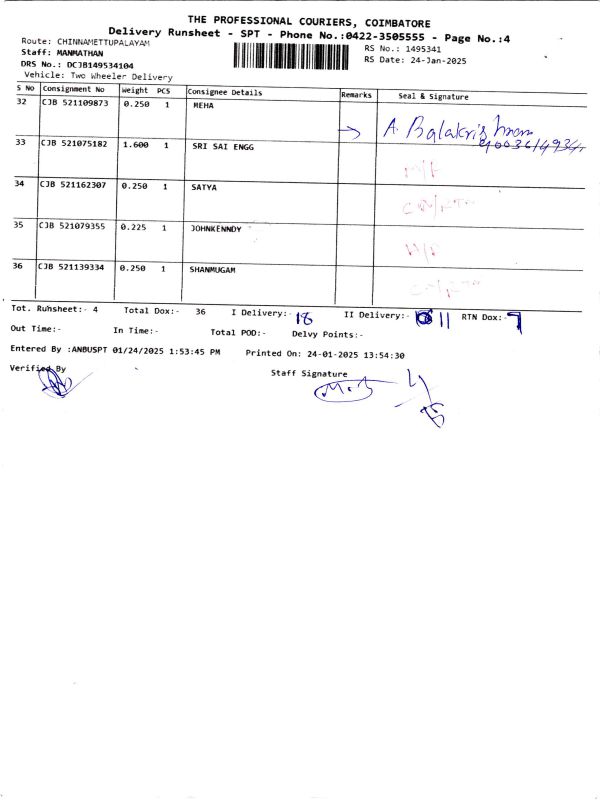 THE PROFESSIONAL COURIERS, COIMBATORE
Delivery Runsheet - SPT - Phone No.:0422-3505555 - Page No.:4
Route: CHINNAMETTUPALAYAM
RS No.: 1495341
Staff: MANMATHAN
RS Date: 24-Jan-2025
DRS No.: DCJB149534104
Vehicle: Two Wheeler Delivery
S No Consignment No Weight PCS Consignee Details Remarks Seal & Signature
32 CJB 521109873 0.250 1 MEHA
A. Balakrishnan
33 CJB 521075182 1.600 1 SRI SAI ENGG
34 CJB 521162307 0.250 1 SATYA
35 CJB 521079355 0.225 1 JOHNKENNDY
36 CJB 521139334 0.250 1 SHANMUGAM
Tot. Ruhsheet:- 4 Total Dox:- 36 I Delivery:- 18 II Delivery:- 11 RTN Dox:- 7
Out Time:- In Time:- Total POD:- Delvy Points:-
Entered By :ANBUSPT 01/24/2025 1:53:45 PM Printed On: 24-01-2025 13:54:30
Verified By Staff Signature